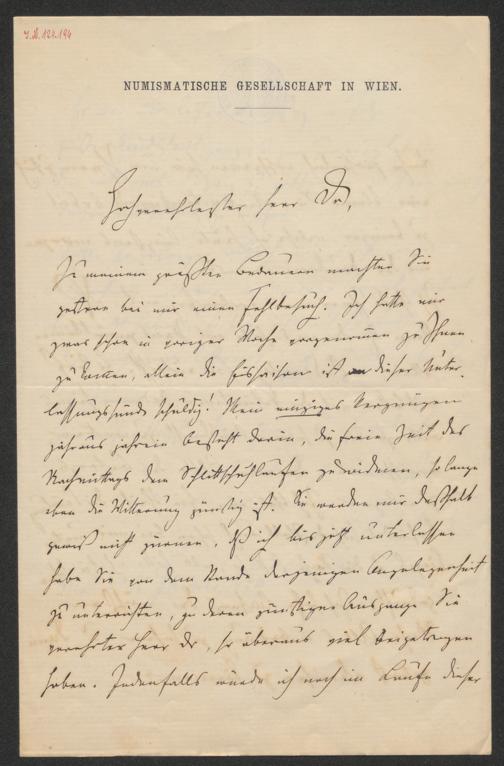 I.N. 124.194
NUMISMATISCHE GESELLSCHAFT IN WIEN.
Hochverehrtester Herr Dr,
Zu meinem größten Bedauern machten Sie
gestern bei mir einen Fehlbesuch. Ich hatte mir
zwar schon in voriger Woche vorgenommen zu Ihnen
zu kommen, allein die Eissaison ist an dieser Unter-
lassungssünde schuldig! Mein einziges Vergnügen
jahraus jahrein besteht darin, die freie Zeit des
Nachmittags dem Schlittschuhlaufen zu widmen, so lange
eben die Witterung günstig ist. Sie werden mir deßhalb
gewiß nicht zürnen, daß ich bis jetzt unterlassen
habe Sie von dem Stande derjenigen Angelegenheit
zu unterrichten, zu deren günstigem Ausgange Sie
verehrter Herr Dr, so überaus viel beigetragen
haben. Jedenfalls würde ich noch im Laufe dieser